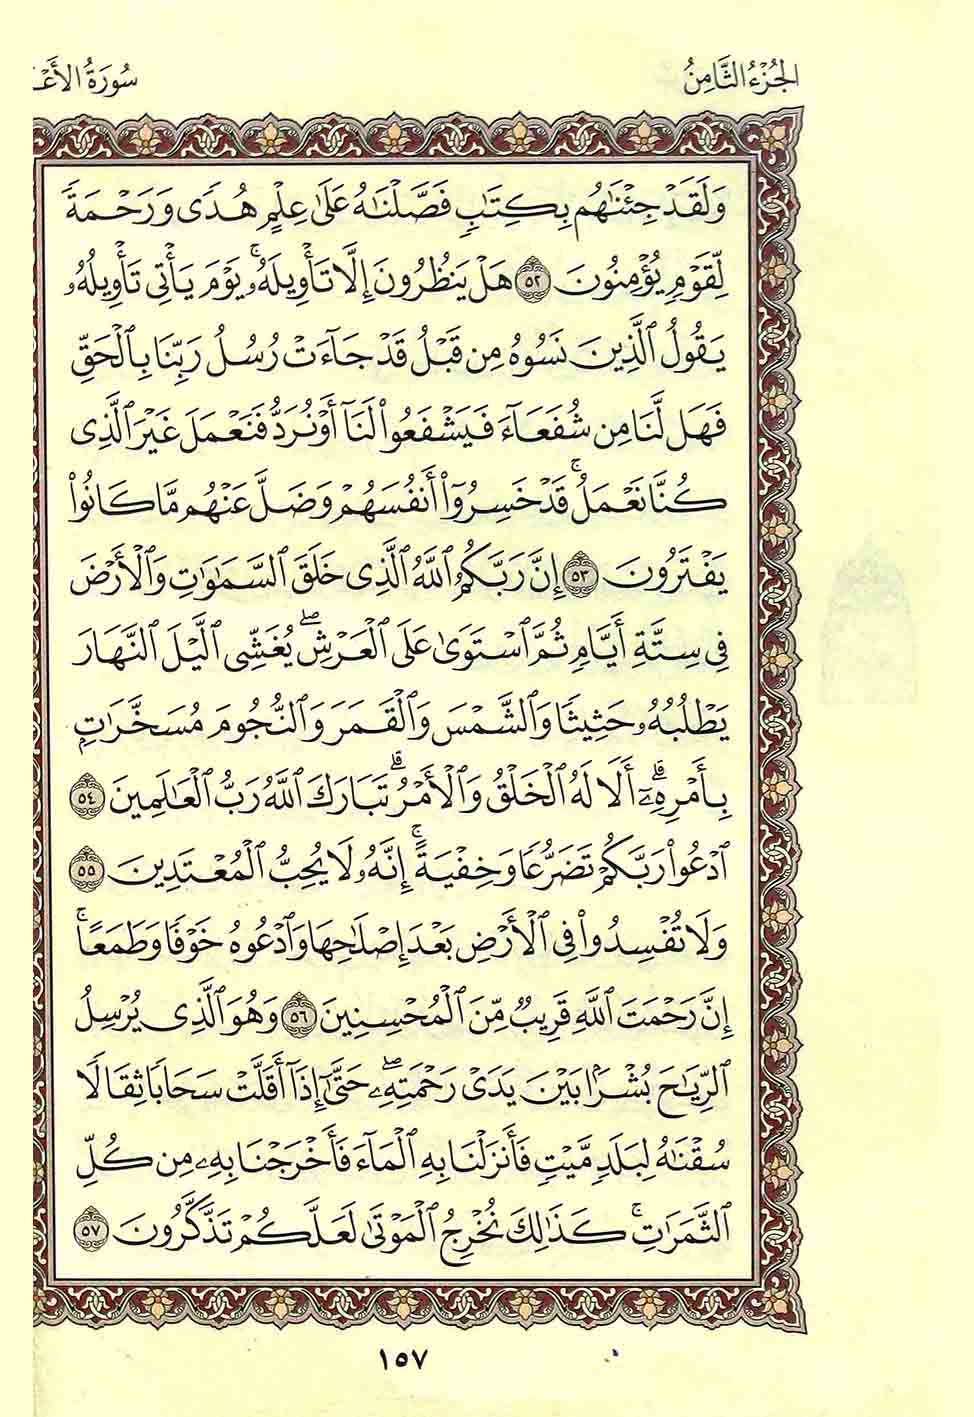 الجُزْءُ الثَّامِنُ
سُورَةُ الأَعْ
وَلَقَدْ جِئْنَٰهُم بِكِتَٰبٍ فَصَّلْنَٰهُ عَلَىٰ عِلْمٍ هُدًى وَرَحْمَةً
لِّقَوْمٍ يُؤْمِنُونَ ٥٢ هَلْ يَنظُرُونَ إِلَّا تَأْوِيلَهُۥۚ يَوْمَ يَأْتِى تَأْوِيلُهُۥ
يَقُولُ ٱلَّذِينَ نَسُوهُ مِن قَبْلُ قَدْ جَآءَتْ رُسُلُ رَبِّنَا بِٱلْحَقِّ
فَهَل لَّنَا مِن شُفَعَآءَ فَيَشْفَعُوا۟ لَنَآ أَوْ نُرَدُّ فَنَعْمَلَ غَيْرَ ٱلَّذِى
كُنَّا نَعْمَلُۚ قَدْ خَسِرُوٓا۟ أَنفُسَهُمْ وَضَلَّ عَنْهُم مَّا كَانُوا۟
يَفْتَرُونَ ٥٣ إِنَّ رَبَّكُمُ ٱللَّهُ ٱلَّذِى خَلَقَ ٱلسَّمَٰوَٰتِ وَٱلْأَرْضَ
فِى سِتَّةِ أَيَّامٍ ثُمَّ ٱسْتَوَىٰ عَلَى ٱلْعَرْشِۖ يُغْشِى ٱلَّيْلَ ٱلنَّهَارَ
يَطْلُبُهُۥ حَثِيثًا وَٱلشَّمْسَ وَٱلْقَمَرَ وَٱلنُّجُومَ مُسَخَّرَٰتٍۭ
بِأَمْرِهِۦٓۗ أَلَا لَهُ ٱلْخَلْقُ وَٱلْأَمْرُۗ تَبَارَكَ ٱللَّهُ رَبُّ ٱلْعَٰلَمِينَ ٥٤
ٱدْعُوا۟ رَبَّكُمْ تَضَرُّعًا وَخُفْيَةًۚ إِنَّهُۥ لَا يُحِبُّ ٱلْمُعْتَدِينَ ٥٥
وَلَا تُفْسِدُوا۟ فِى ٱلْأَرْضِ بَعْدَ إِصْلَٰحِهَا وَٱدْعُوهُ خَوْفًا وَطَمَعًاۚ
إِنَّ رَحْمَتَ ٱللَّهِ قَرِيبٌ مِّنَ ٱلْمُحْسِنِينَ ٥٦ وَهُوَ ٱلَّذِى يُرْسِلُ
ٱلرِّيَٰحَ بُشْرًۢا بَيْنَ يَدَىْ رَحْمَتِهِۦۖ حَتَّىٰٓ إِذَآ أَقَلَّتْ سَحَابًا ثِقَالًا
سُقْنَٰهُ لِبَلَدٍ مَّيِّتٍ فَأَنزَلْنَا بِهِ ٱلْمَآءَ فَأَخْرَجْنَا بِهِۦ مِن كُلِّ
ٱلثَّمَرَٰتِۚ كَذَٰلِكَ نُخْرِجُ ٱلْمَوْتَىٰ لَعَلَّكُمْ تَذَكَّرُونَ ٥٧
١٥٧